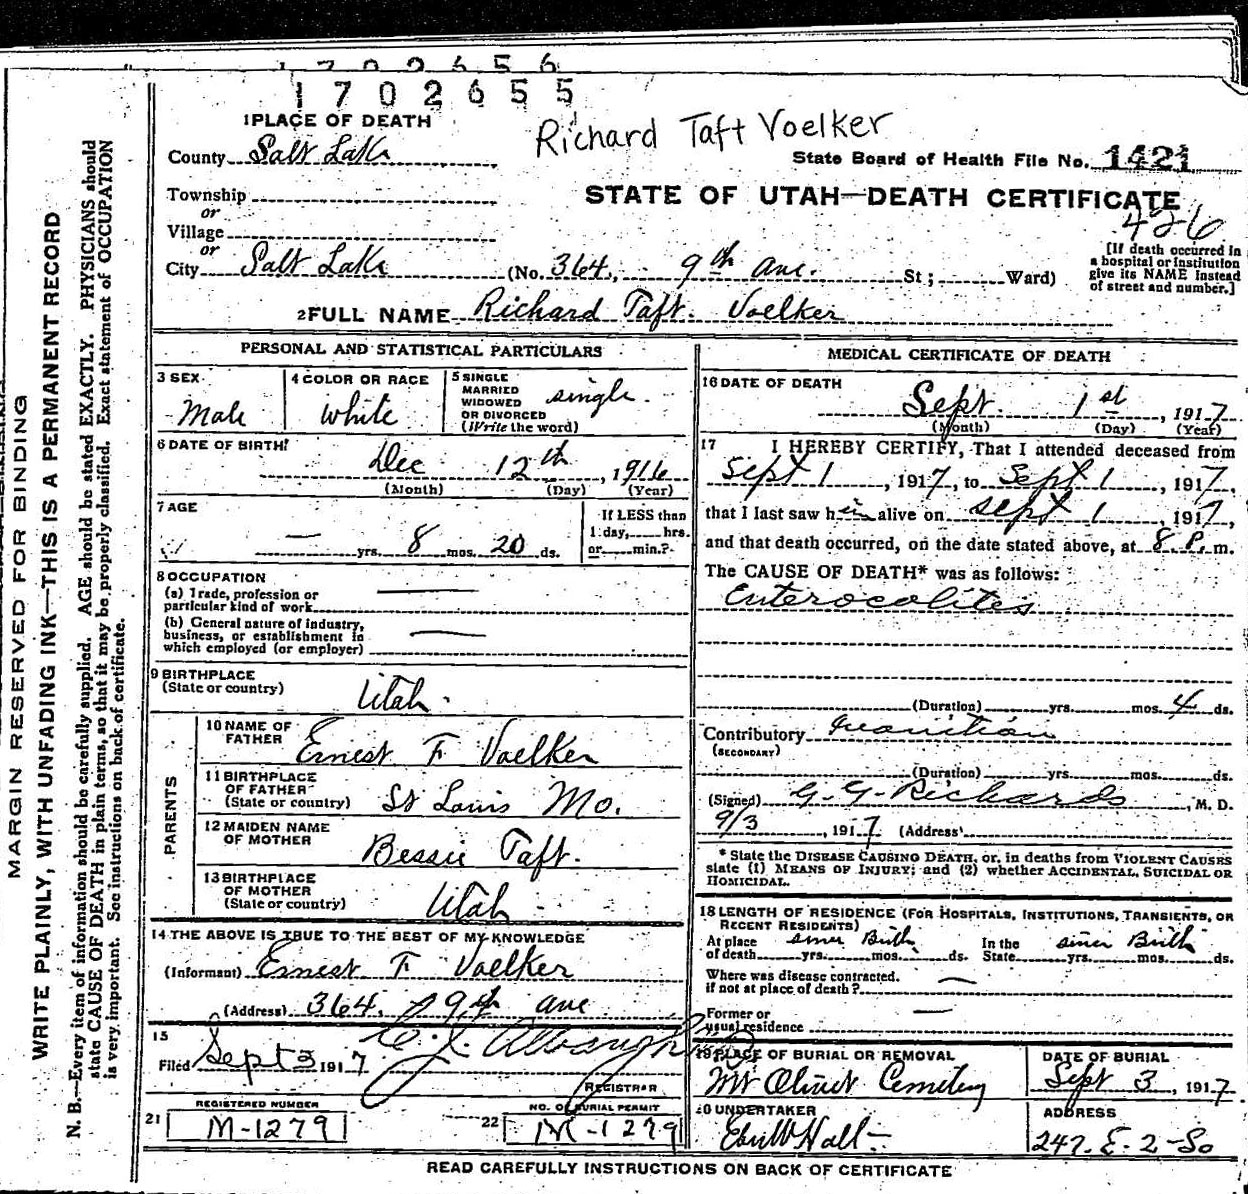 1702656
1702655
Richard Taft Voelker
1 PLACE OF DEATH
County Salt Lake
State Board of Health File No. 1421
Township
or
Village
or
STATE OF UTAH—DEATH CERTIFICATE
426
City Salt Lake (No. 364, 9th Ave. St; Ward)
[If death occurred in
a hospital or institution
give its NAME instead
of street and number.]
2 FULL NAME Richard Taft Voelker
MARGIN RESERVED FOR BINDING
WRITE PLAINLY, WITH UNFADING INK—THIS IS A PERMANENT RECORD
N. B.—Every item of information should be carefully supplied. AGE should be stated EXACTLY. PHYSICIANS should
state CAUSE OF DEATH in plain terms, so that it may be properly classified. Exact statement of OCCUPATION
is very important. See instructions on back of certificate.
PERSONAL AND STATISTICAL PARTICULARS
3 SEX
Male
4 COLOR OR RACE
White
5 SINGLE
MARRIED
WIDOWED
OR DIVORCED
(Write the word)
single.
6 DATE OF BIRTH
Dec 12th, 1916
(Month) (Day) (Year)
7 AGE
— yrs. 8 mos. 20 ds.
If LESS than
1 day, hrs.
or min.?
8 OCCUPATION
(a) Trade, profession or
particular kind of work —
(b) General nature of industry,
business, or establishment in
which employed (or employer) —
9 BIRTHPLACE
(State or country) Utah.
PARENTS
10 NAME OF
FATHER Ernest F Voelker
11 BIRTHPLACE
OF FATHER
(State or country) St Louis Mo.
12 MAIDEN NAME
OF MOTHER Bessie Taft.
13 BIRTHPLACE
OF MOTHER
(State or country) Utah
14 THE ABOVE IS TRUE TO THE BEST OF MY KNOWLEDGE
(Informant) Ernest F Voelker
(Address) 364 9th ave
15
Filed Sept 3 1917
REGISTRAR
REGISTERED NUMBER
21 M-1279
NO. OF BURIAL PERMIT
22 M-1279
MEDICAL CERTIFICATE OF DEATH
16 DATE OF DEATH
Sept. 1st, 1917
(Month) (Day) (Year)
17 I HEREBY CERTIFY, That I attended deceased from
Sept 1, 1917, to Sept 1, 1917,
that I last saw him alive on Sept 1, 1917,
and that death occurred, on the date stated above, at 8 P. m.
The CAUSE OF DEATH* was as follows:
Enterocolites
(Duration) yrs. mos. 4 ds.
Contributory Inanition
(SECONDARY)
(Duration) yrs. mos. ds.
(Signed) G. G. Richards, M. D.
9/3, 1917 (Address)
* State the DISEASE CAUSING DEATH, or, in deaths from VIOLENT CAUSES
state (1) MEANS OF INJURY; and (2) whether ACCIDENTAL, SUICIDAL OR
HOMICIDAL.
18 LENGTH OF RESIDENCE (FOR HOSPITALS, INSTITUTIONS, TRANSIENTS, OR
RECENT RESIDENTS)
At place
of death since Birth yrs. mos. ds.
In the
State since Birth yrs. mos. ds.
Where was disease contracted.
if not at place of death? —
Former or
usual residence —
19 PLACE OF BURIAL OR REMOVAL
Mt Olivet Cemetery
DATE OF BURIAL
Sept 3, 1917.
20 UNDERTAKER
Eber W Hall
ADDRESS
247. E-2-So
READ CAREFULLY INSTRUCTIONS ON BACK OF CERTIFICATE